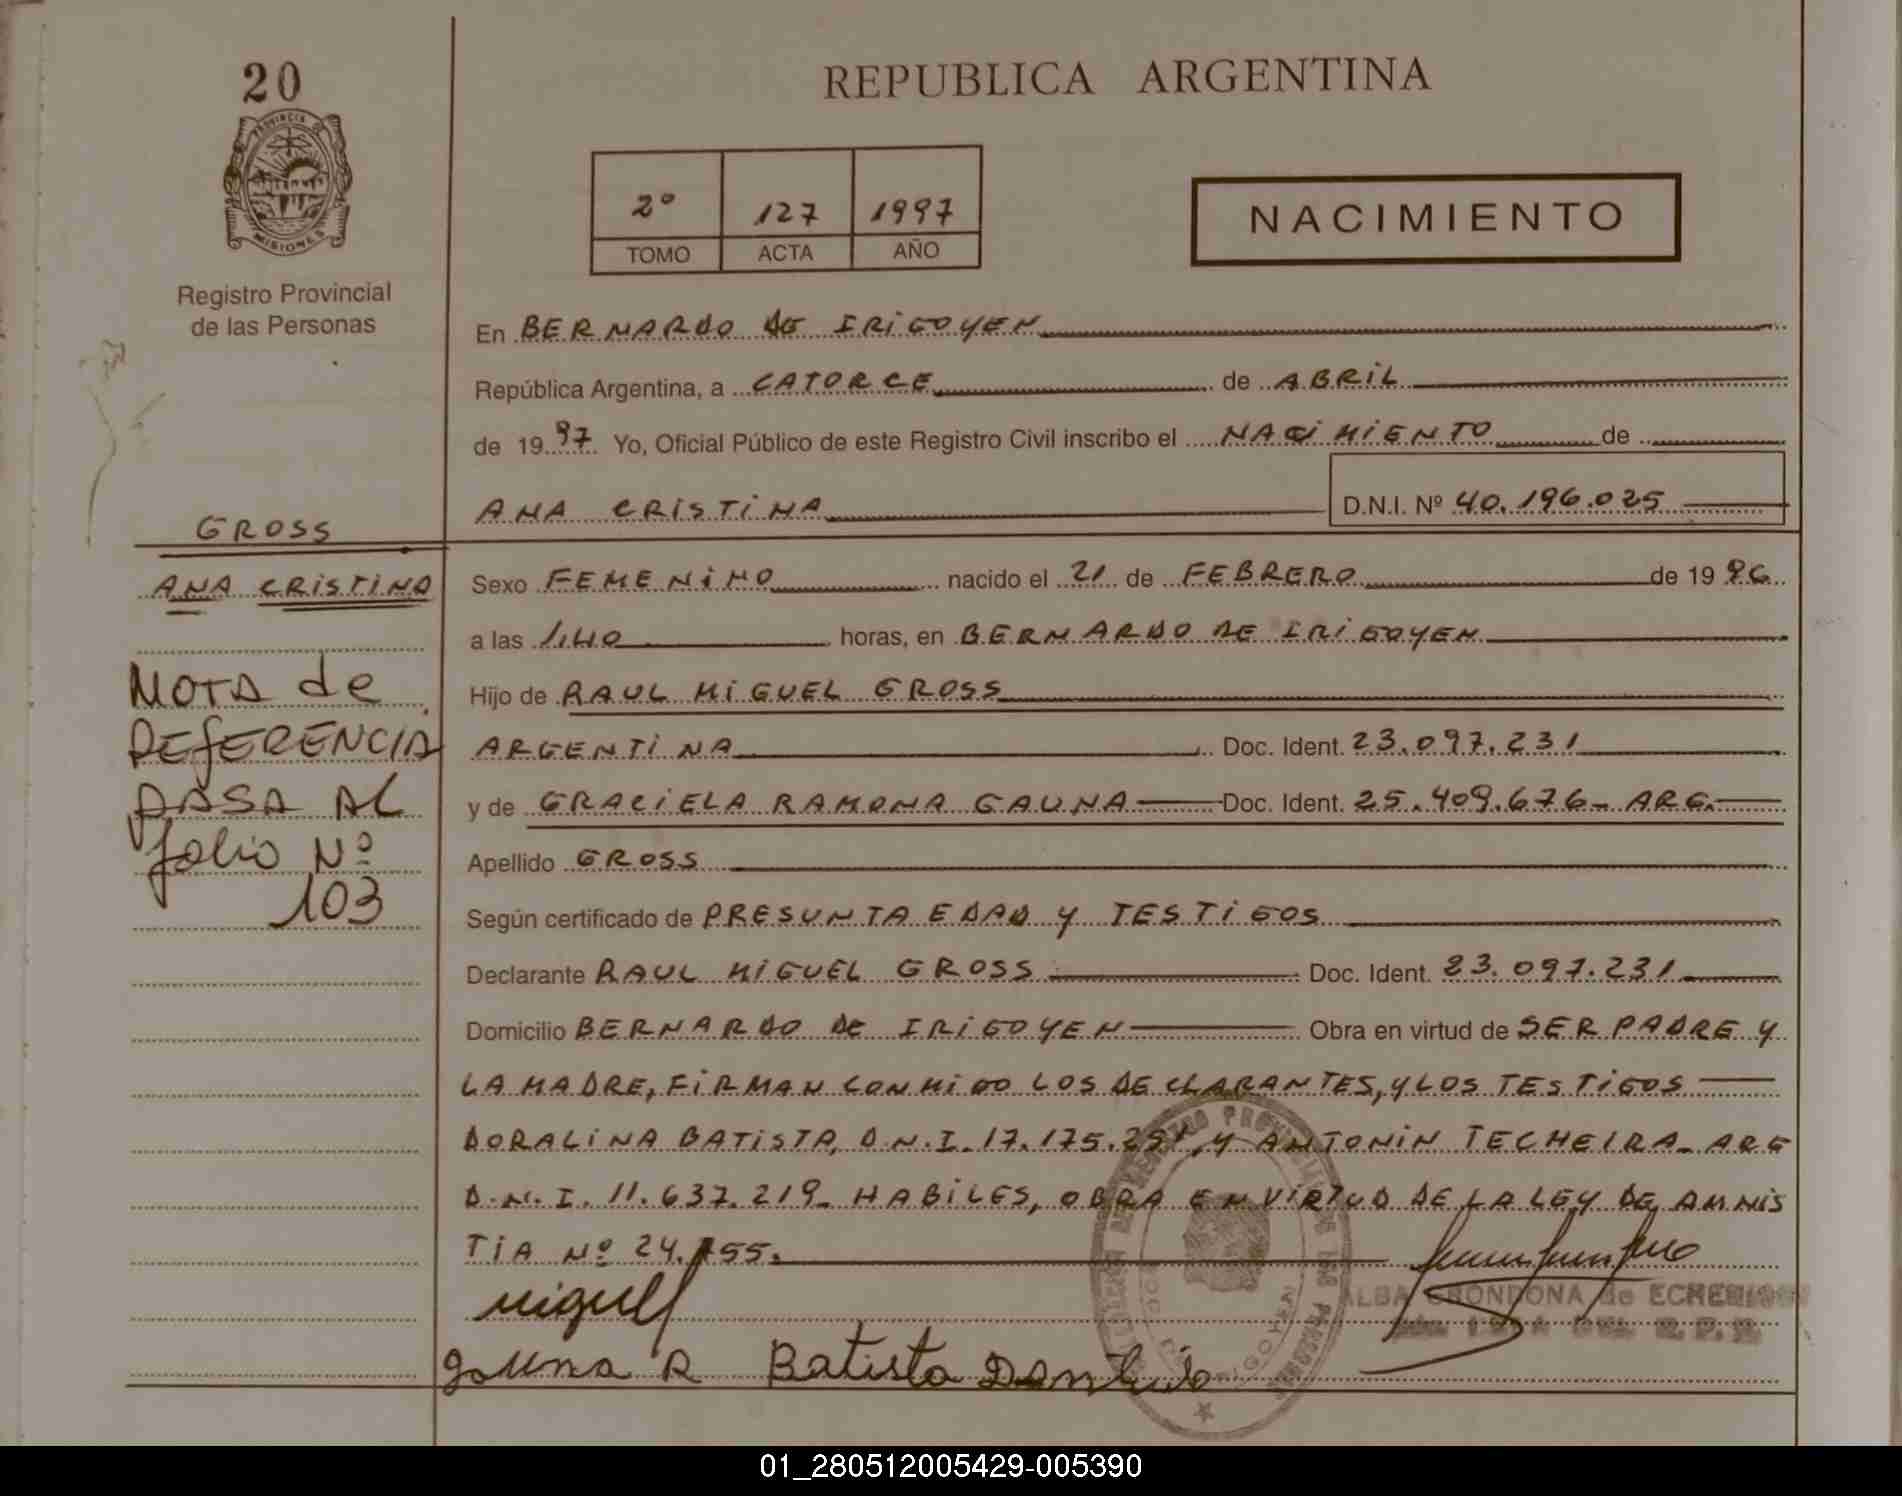 20
PROVINCIA DE
MISIONES
Registro Provincial
de las Personas
REPUBLICA ARGENTINA
2º 127 1997
TOMO ACTA AÑO
NACIMIENTO
En BERNARDO DE IRIGOYEN
República Argentina, a CATORCE de ABRIL
de 1997 Yo, Oficial Público de este Registro Civil inscribo el NACIMIENTO de
ANA CRISTINA D.N.I. Nº 40.196.025
GROSS
ANA CRISTINA
NOTA de
REFERENCIA
PASA AL
folio Nº
103
Sexo FEMENINO nacido el 21 de FEBRERO de 1996
a las 1,40 horas, en BERNARDO DE IRIGOYEN
Hijo de RAUL MIGUEL GROSS
ARGENTINA Doc. Ident. 23.097.231
y de GRACIELA RAMONA GAUNA Doc. Ident. 25.409.676- ARG.
Apellido GROSS
Según certificado de PRESUNTA EDAD Y TESTIGOS
Declarante RAUL MIGUEL GROSS Doc. Ident. 23.097.231
Domicilio BERNARDO DE IRIGOYEN Obra en virtud de SER PADRE Y
LA MADRE, FIRMAN CONMIGO LOS DECLARANTES, Y LOS TESTIGOS
DORALINA BATISTA, D.N.I. 17.175. Y ANTONIN TECHEIRA- ARG
D.N.I. 11.637.219- HABILES, OBRA EN VIRTUD DE LA LEY DE AMNIS
TIA Nº 24.755.
miguel
ALBA de
gauna R Batista
01_280512005429-005390